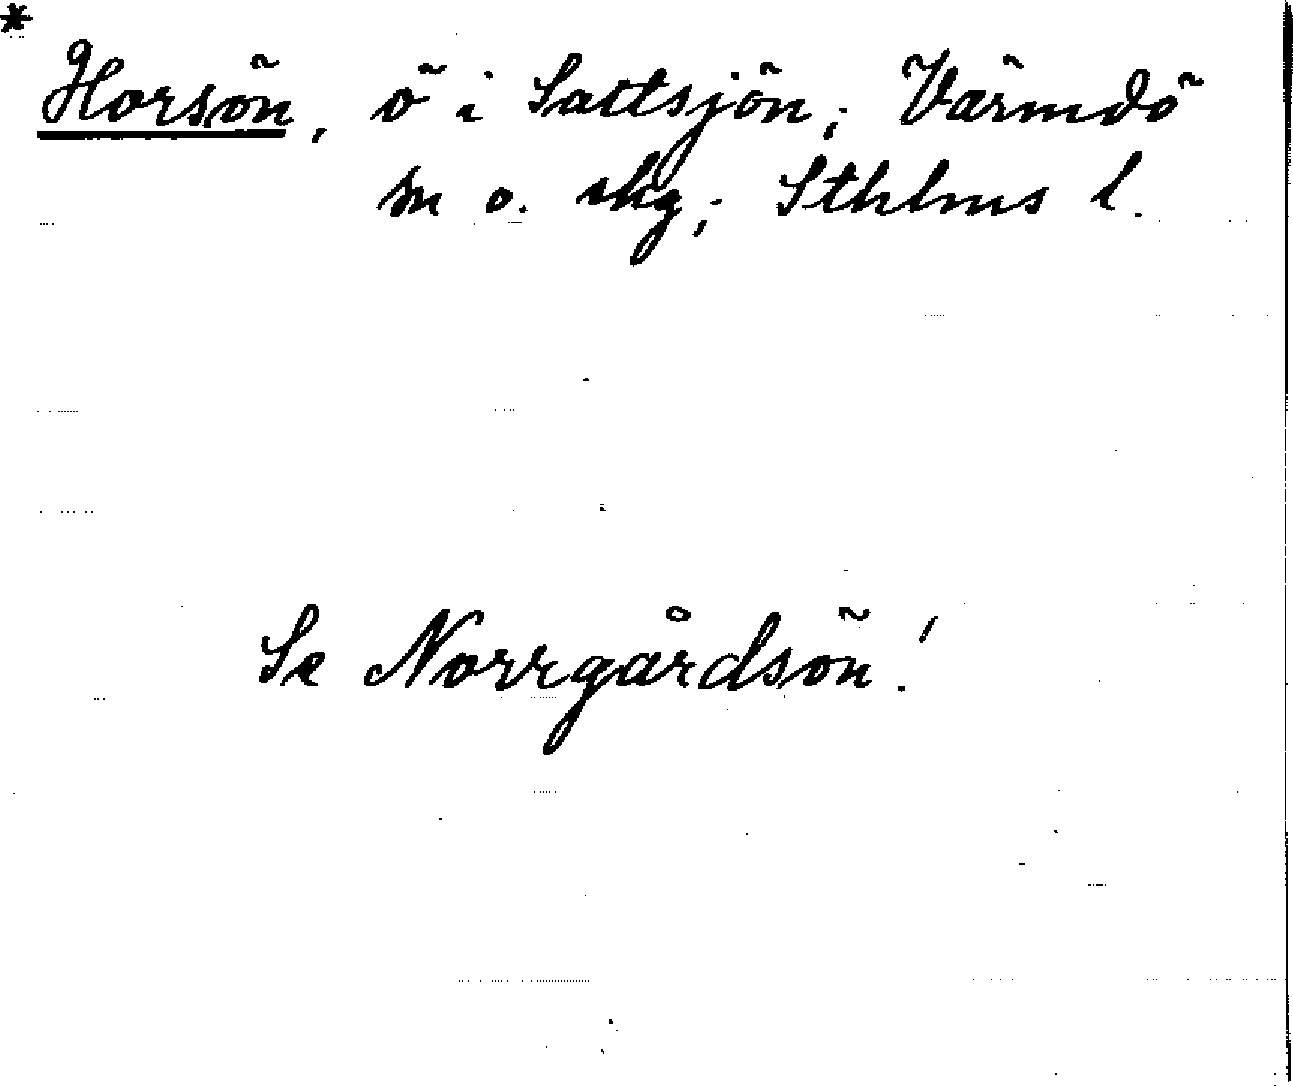 *
Horsön, ö i Saltsjön; Värmdö
sn o. skg; Sthlms l.
Se Norrgårdsön!